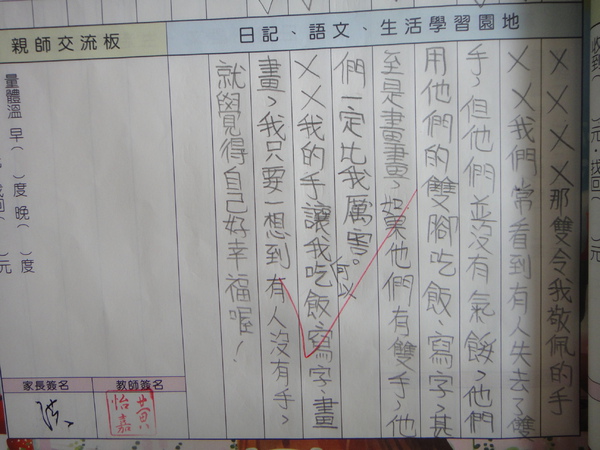 日記、語文、生活學習園地
親師交流板
××××那雙令我敬佩的手
××我們常看到有人失去了雙
手，但他們並沒有氣餒，他們
用他們的雙腳吃飯、寫字，甚
至是畫畫，如果他們有雙手，他
們一定比我厲害。
××我的手讓我可以吃飯、寫字、畫
畫，我只要一想到有人沒有手，
就覺得自己好幸福喔！
量體溫 早( )度 晚( )度
家長簽名
教師簽名
黃怡嘉